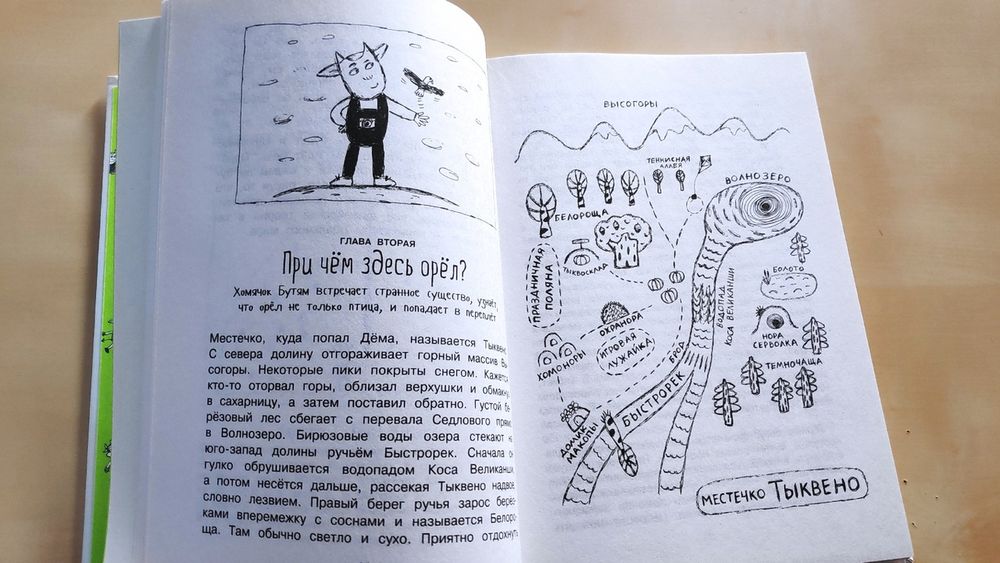 ГЛАВА ВТОРАЯ
При чём здесь орёл?
Хомячок Бутям встречает странное существо, узнаёт,
что орёл не только птица, и попадает в переплёт
Местечко, куда попал Дёма, называется Тыквено.
С севера долину отгораживает горный массив Вы-
согоры. Некоторые пики покрыты снегом. Кажется,
кто-то оторвал горы, облизал верхушки и обмакнул
в сахарницу, а затем поставил обратно. Густой бе-
рёзовый лес сбегает с перевала Седлового прямо
в Волнозеро. Бирюзовые воды озера стекают на
юго-запад долины ручьём Быстрорек. Сначала он
гулко обрушивается водопадом Коса Великанши,
а потом несётся дальше, рассекая Тыквено надвое,
словно лезвием. Правый берег ручья зарос берёз-
ками вперемежку с соснами и называется Белоро-
ща. Там обычно светло и сухо. Приятно отдохнуть
ВЫСОГОРЫ
ТЕННИСНАЯ
АЛЛЕЯ
ВОЛНОЗЕРО
БЕЛОРОЩА
ТЫКВОСКЛАД
ПРАЗДНИЧНАЯ
ПОЛЯНА
БОЛОТО
ВОДОПАД
КОСА ВЕЛИКАНШИ
ОХРАНОРА
НОРА
СЕРВОЛКА
ХОМОНОРЫ
ИГРОВАЯ
ЛУЖАЙКА
БРОД
ТЕМНОЧАЩА
БЫСТРОРЕК
ДОМИК
МАКОПЫ
МЕСТЕЧКО ТЫКВЕНО